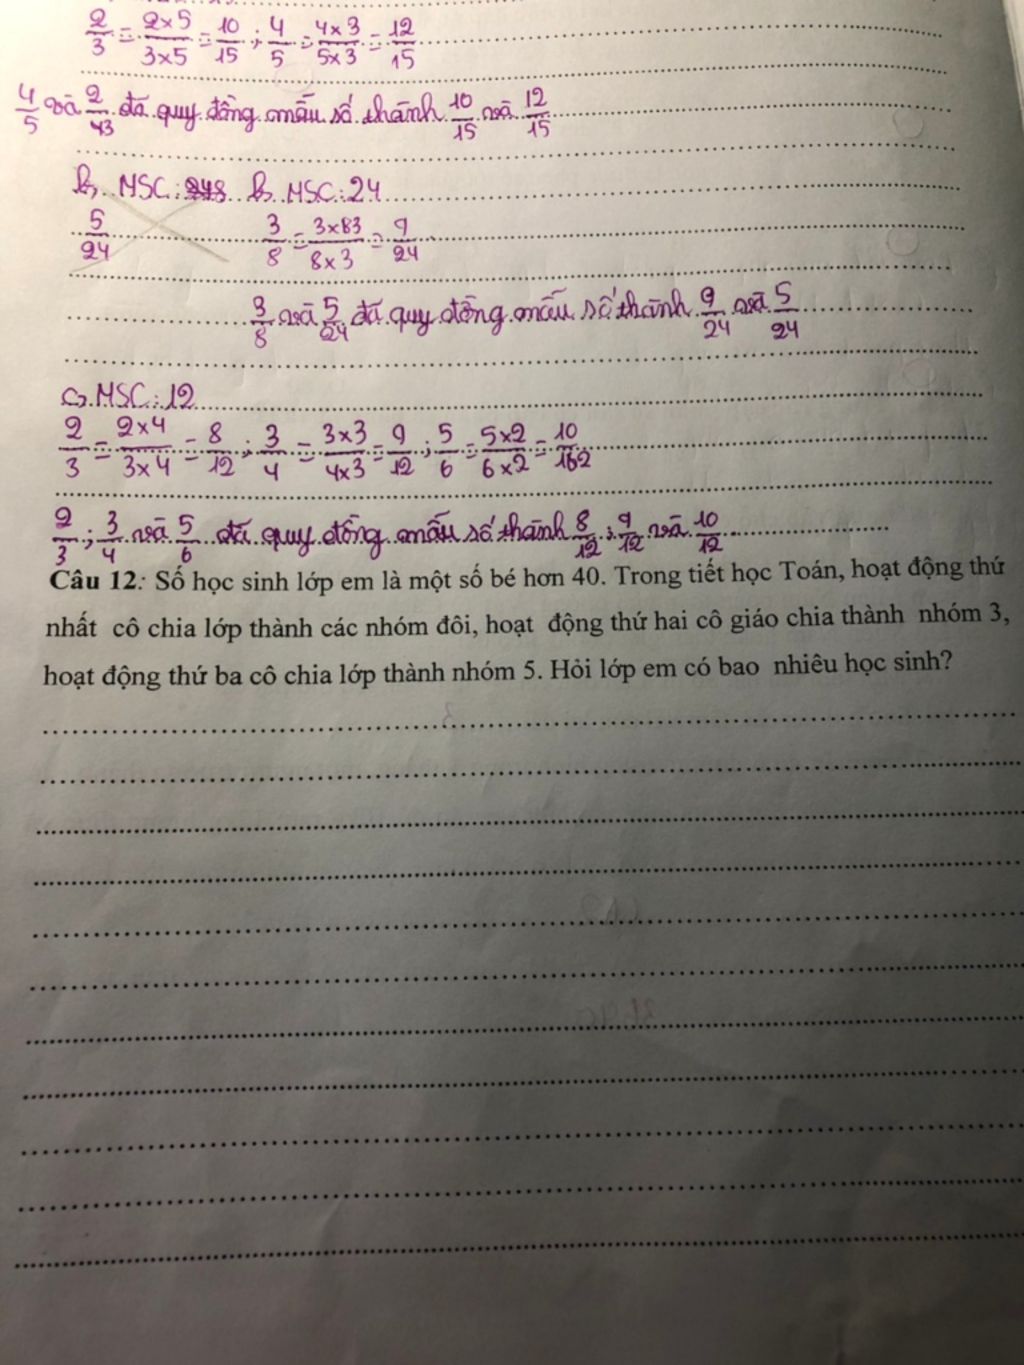 2/3 = 2x5/3x5 = 10/15 ; 4/5 = 4x3/5x3 = 12/15
4/5 và 2/3 đã quy đồng mẫu số thành 10/15 và 12/15
b, MSC: b, MSC: 24
5/24 3/8 = 3x3/8x3 = 9/24
3/8 và 5/24 đã quy đồng mẫu số thành 9/24 và 5/24
c, MSC: 12
2/3 = 2x4/3x4 = 8/12 ; 3/4 = 3x3/4x3 = 9/12 ; 5/6 = 5x2/6x2 = 10/12
2/3 ; 3/4 và 5/6 đã quy đồng mẫu số thành 8/12 ; 9/12 và 10/12
Câu 12: Số học sinh lớp em là một số bé hơn 40. Trong tiết học Toán, hoạt động thứ
nhất cô chia lớp thành các nhóm đôi, hoạt động thứ hai cô giáo chia thành nhóm 3,
hoạt động thứ ba cô chia lớp thành nhóm 5. Hỏi lớp em có bao nhiêu học sinh?